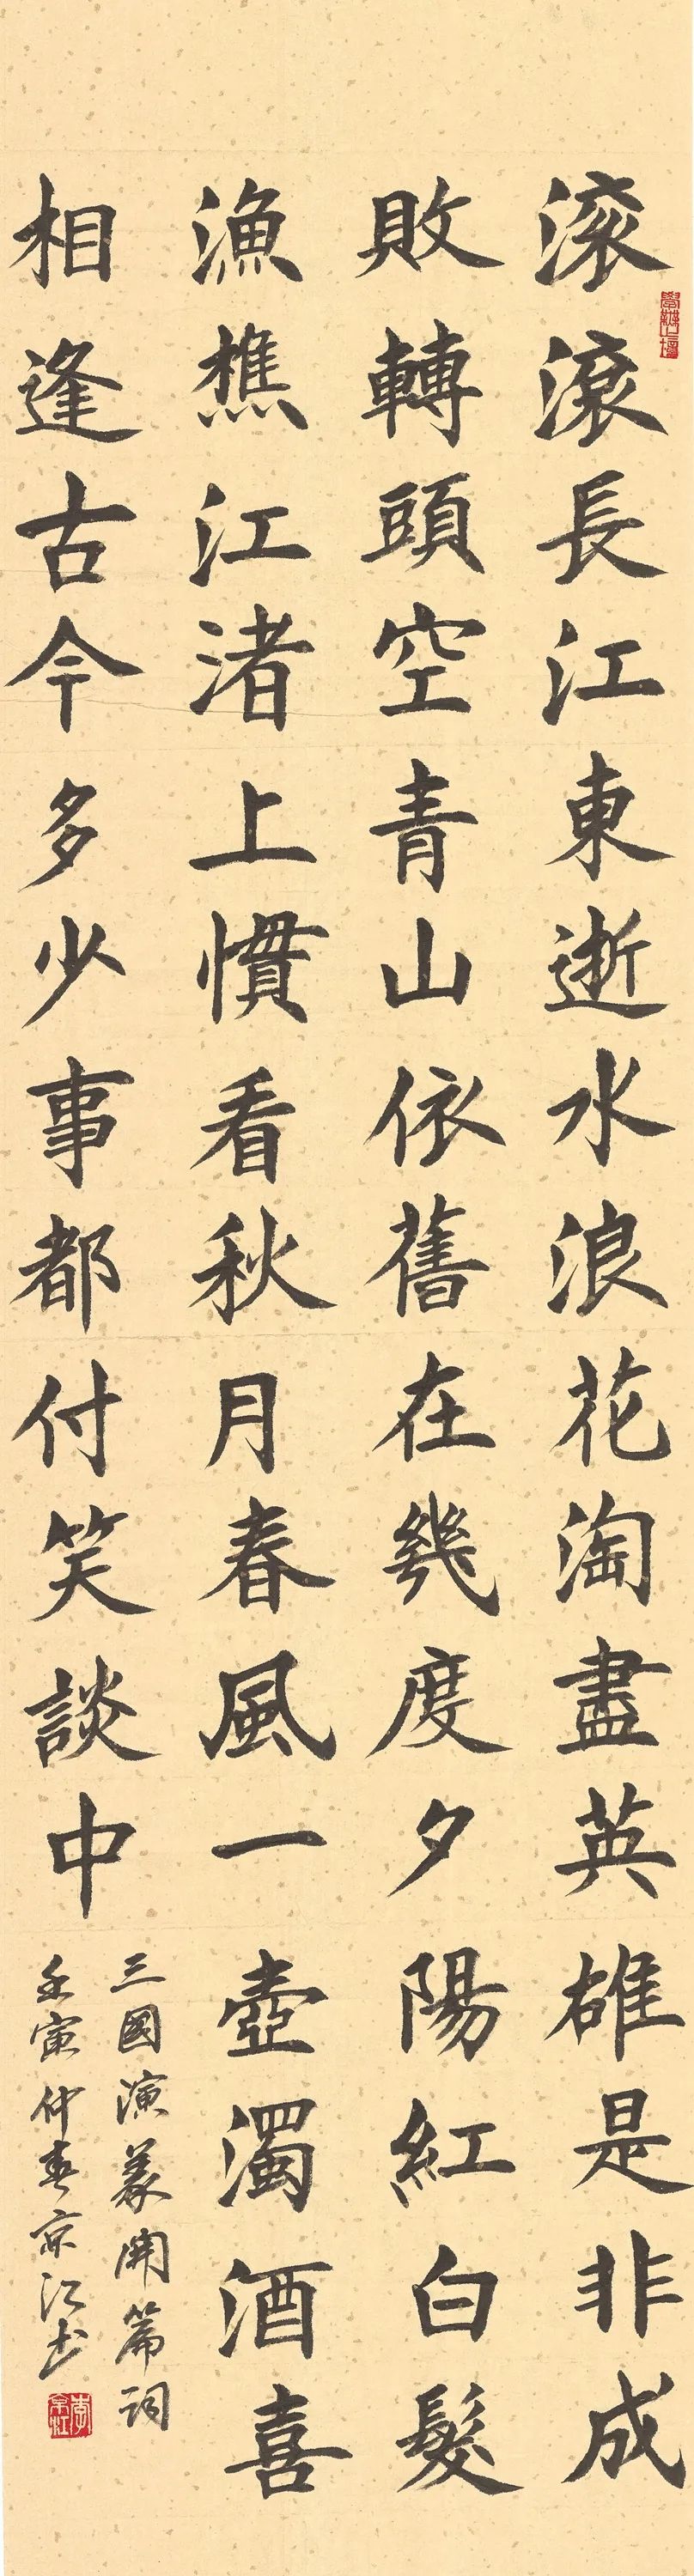 滚滾長江東逝水浪花淘盡英雄是非成
敗轉頭空青山依舊在幾度夕陽紅白髮
漁樵江渚上慣看秋月春風一壺濁酒喜
相逢古今多少事都付笑談中
三國演義開篇詞
壬寅仲春京江書